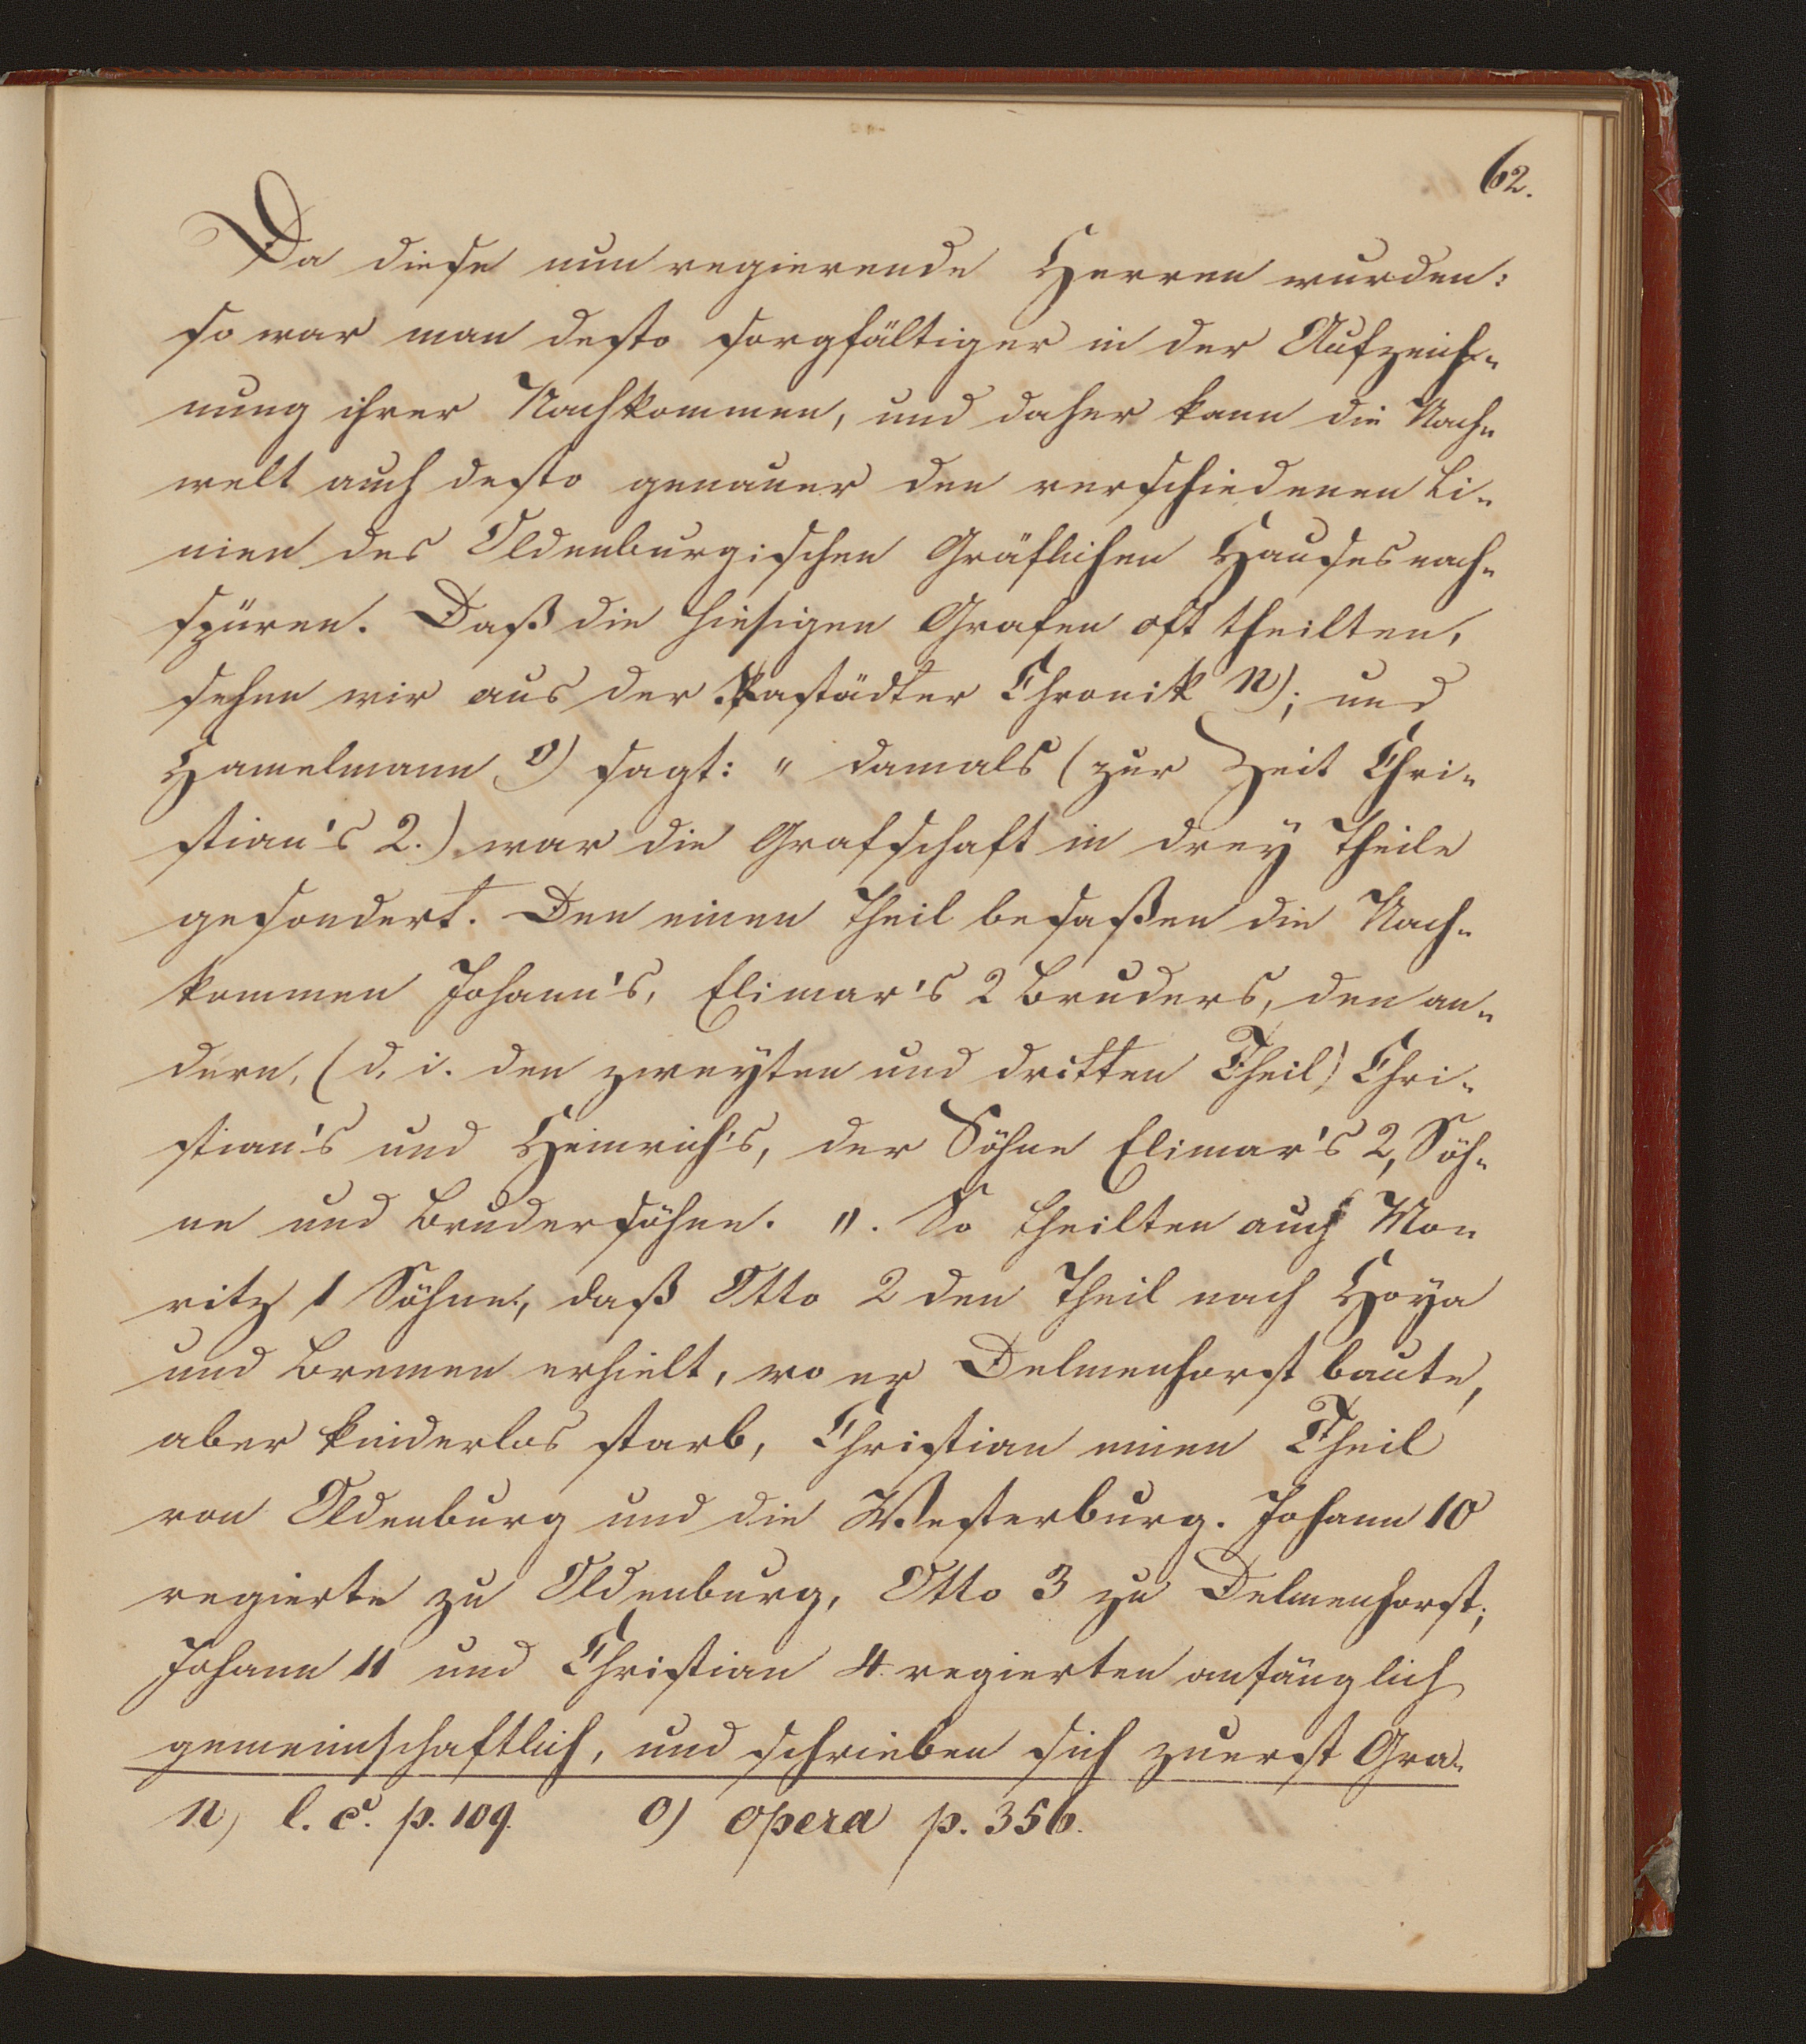 62.
Da diese nun regierende Herren wurden:
so war man desto sorgfältiger in der Aufzeich-
nung ihrer Nachkommen, und daher kann die Nach-
welt auch desto genauer den verschiedenen Li-
nien des Oldenburgischen Gräflichen Hauses nach-
spüren. Daß die hiesigen Grafen oft theilten,
sehen wir aus der Rastädter Chronik n); und
Hamelmann o) sagt: „ damals (zur Zeit Chri-
stian's 2.) war die Grafschaft in drey Theile
gesondert. Den einen Theil besaßen die Nach-
kommen Johann's, Elimar's 2 Bruders, den an-
dern, (d. i. den zweyten und dritten Theil) Chri-
stian's und Heinrich's, der Söhne Elimar's 2, Söh-
ne und Brudersöhne. „. So theilten auch Mo-
ritz 1 Söhne, daß Otto 2 den Theil nach Hoya
und Bremen erhielt, wo er Delmenhorst baute,
aber kinderlos starb, Christian einen Theil
von Oldenburg und die Westerburg. Johann 10
regierte zu Oldenburg, Otto 3 zu Delmenhorst;
Johann 11 und Christian 4. regierten anfänglich
gemeinschaftlich, und schrieben sich zuerst Gra-
n) l. c. p. 109. o) opera p. 356.